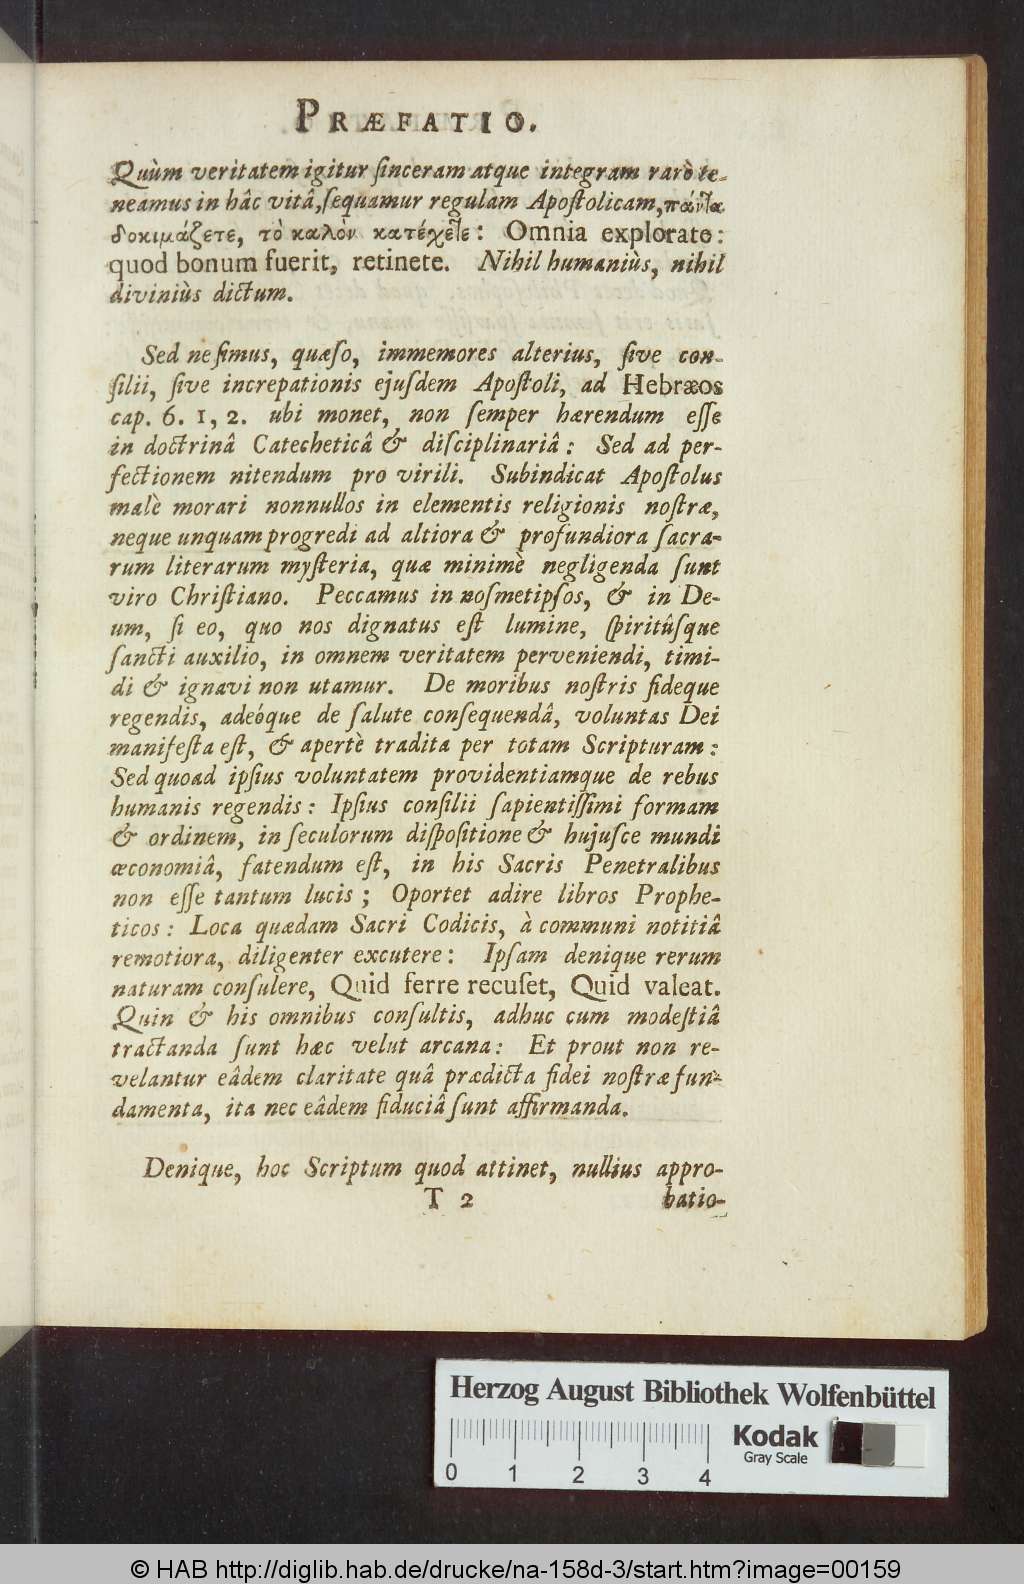 PRÆFATIO.
Quùm veritatem igitur ſinceram atque integram rarò te-
neamus in hâc vitâ, ſequamur regulam Apoſtolicam, πάντα
δοκιμάζετε, τὸ καλὸν κατέχετε: Omnia explorate:
quod bonum fuerit, retinete. Nihil humaniùs, nihil
diviniùs dictum.
Sed ne ſimus, quæſo, immemores alterius, ſive con-
ſilii, ſive increpationis ejuſdem Apoſtoli, ad Hebræos
cap. 6. 1, 2. ubi monet, non ſemper hærendum eſſe
in doctrinâ Catecheticâ & diſciplinariâ: Sed ad per-
fectionem nitendum pro virili. Subindicat Apoſtolus
malè morari nonnullos in elementis religionis noſtræ,
neque unquam progredi ad altiora & profundiora ſacra-
rum literarum myſteria, quæ minimè negligenda ſunt
viro Chriſtiano. Peccamus in noſmetipſos, & in De-
um, ſi eo, quo nos dignatus eſt lumine, ſpiritûſque
ſancti auxilio, in omnem veritatem perveniendi, timi-
di & ignavi non utamur. De moribus noſtris fideque
regendis, adeóque de ſalute conſequendâ, voluntas Dei
manifeſta eſt, & apertè tradita per totam Scripturam:
Sed quoad ipſius voluntatem providentiamque de rebus
humanis regendis: Ipſius conſilii ſapientiſſimi formam
& ordinem, in ſeculorum diſpoſitione & hujuſce mundi
œconomiâ, fatendum eſt, in his Sacris Penetralibus
non eſſe tantum lucis; Oportet adire libros Prophe-
ticos: Loca quædam Sacri Codicis, à communi notitiâ
remotiora, diligenter excutere: Ipſam denique rerum
naturam conſulere, Quid ferre recuſet, Quid valeat.
Quin & his omnibus conſultis, adhuc cum modeſtiâ
tractanda ſunt hæc velut arcana: Et prout non re-
velantur eâdem claritate quâ prædicta fidei noſtræ fun-
damenta, ita nec eâdem fiduciâ ſunt affirmanda.
Denique, hoc Scriptum quod attinet, nullius appro-
T 2 batio-
Herzog August Bibliothek Wolfenbüttel
Kodak
Gray Scale
0 1 2 3 4
© HAB http://diglib.hab.de/drucke/na-158d-3/start.htm?image=00159